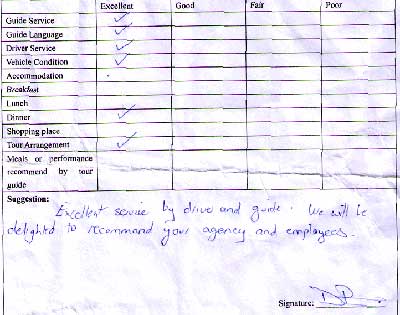 Excellent Good Fair Poor
Guide Service
Guide Language
Driver Service
Vehicle Condition
Accommodation
Breakfast
Lunch
Dinner
Shopping place
Tour Arrangement
Meals or performance
recommend by tour
guide
Suggestion:
Excellent service by driver and guide. We will be
delighted to recommand your agency and employees.
Signature: